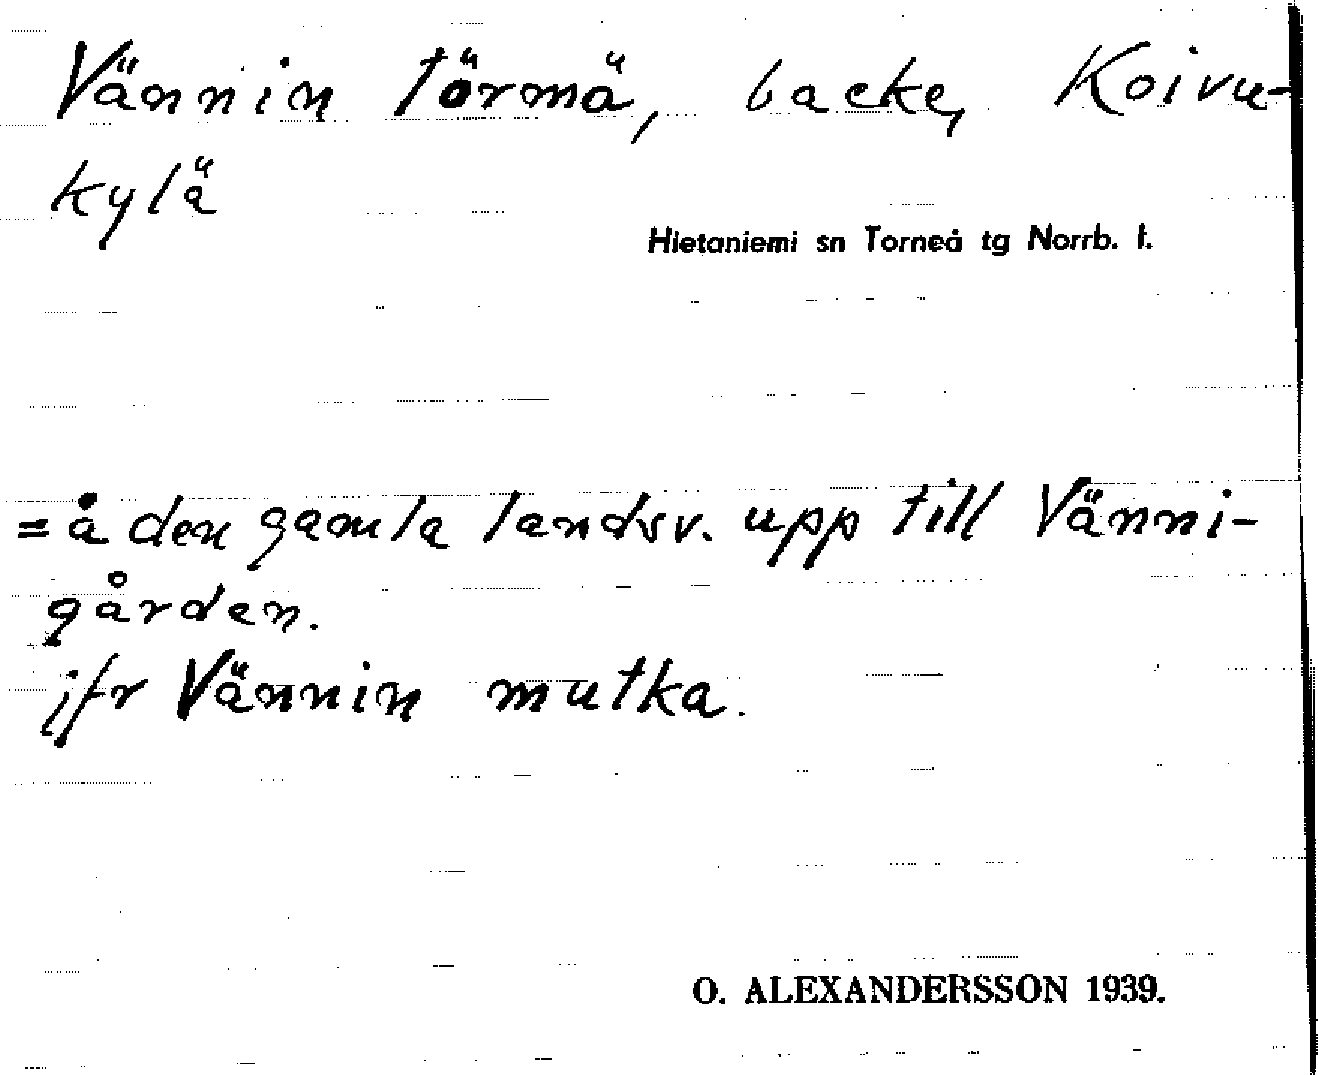 Vännin törmä, backe, Koivu-
kylä
Hietaniemi sn Torneå tg Norrb. l.
= å den gamla landsv. upp till Vänni-
gården.
jfr Vännin mutka.
O. ALEXANDERSSON 1939.